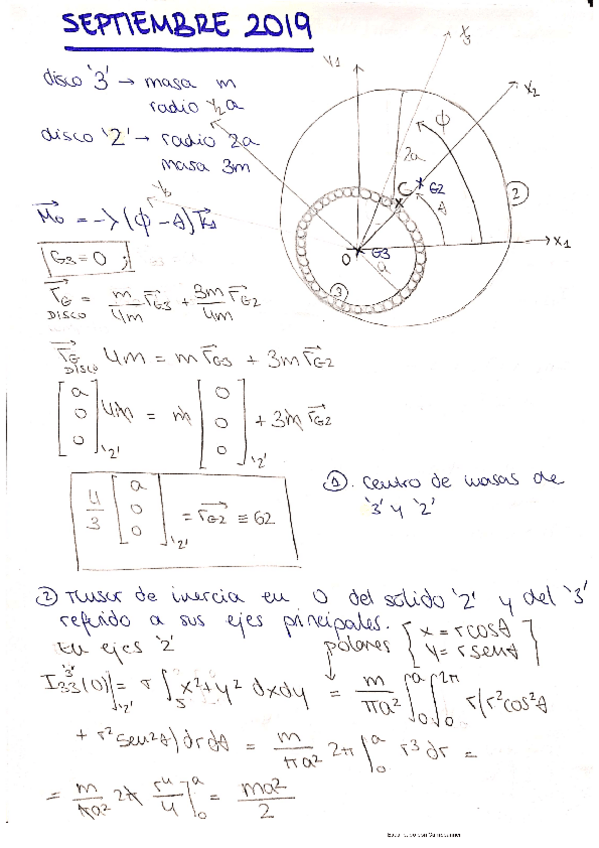 SEPTIEMBRE 2019
disco '3' → masa m
radio ½a
disco '2' → radio 2a
masa 3m
M₀ = -λ(φ - θ) k₁
G3 = 0 ;
r_G DISCO = m/4m r_G3 + 3m/4m r_G2
r_G DISCO 4m = m r_G3 + 3m r_G2
[a 0 0]'2' 4m = m [0 0 0]'2' + 3m r_G2
4/3 [a 0 0]'2' = r_G2 ≡ G2
Y1
X3
X2
φ
2a
C
G2
θ
2
X1
O
G3
a
3
① . Centro de masas de
'3' y '2'
② Tensor de inercia en O del sólido '2' y del '3'
referido a sus ejes principales.
En ejes '2'
polares { x = r cosθ
y = r senθ }
I33'3'(0)]'2' = σ ∫s x²+y² dxdy = m/πa² ∫₀ᵃ ∫₀²π r(r²cos²θ
+ r²sen²θ) dr dθ = m/πa² 2π ∫₀ᵃ r³ dr =
= m/πa² 2π r⁴/4 ]₀ᵃ = ma²/2